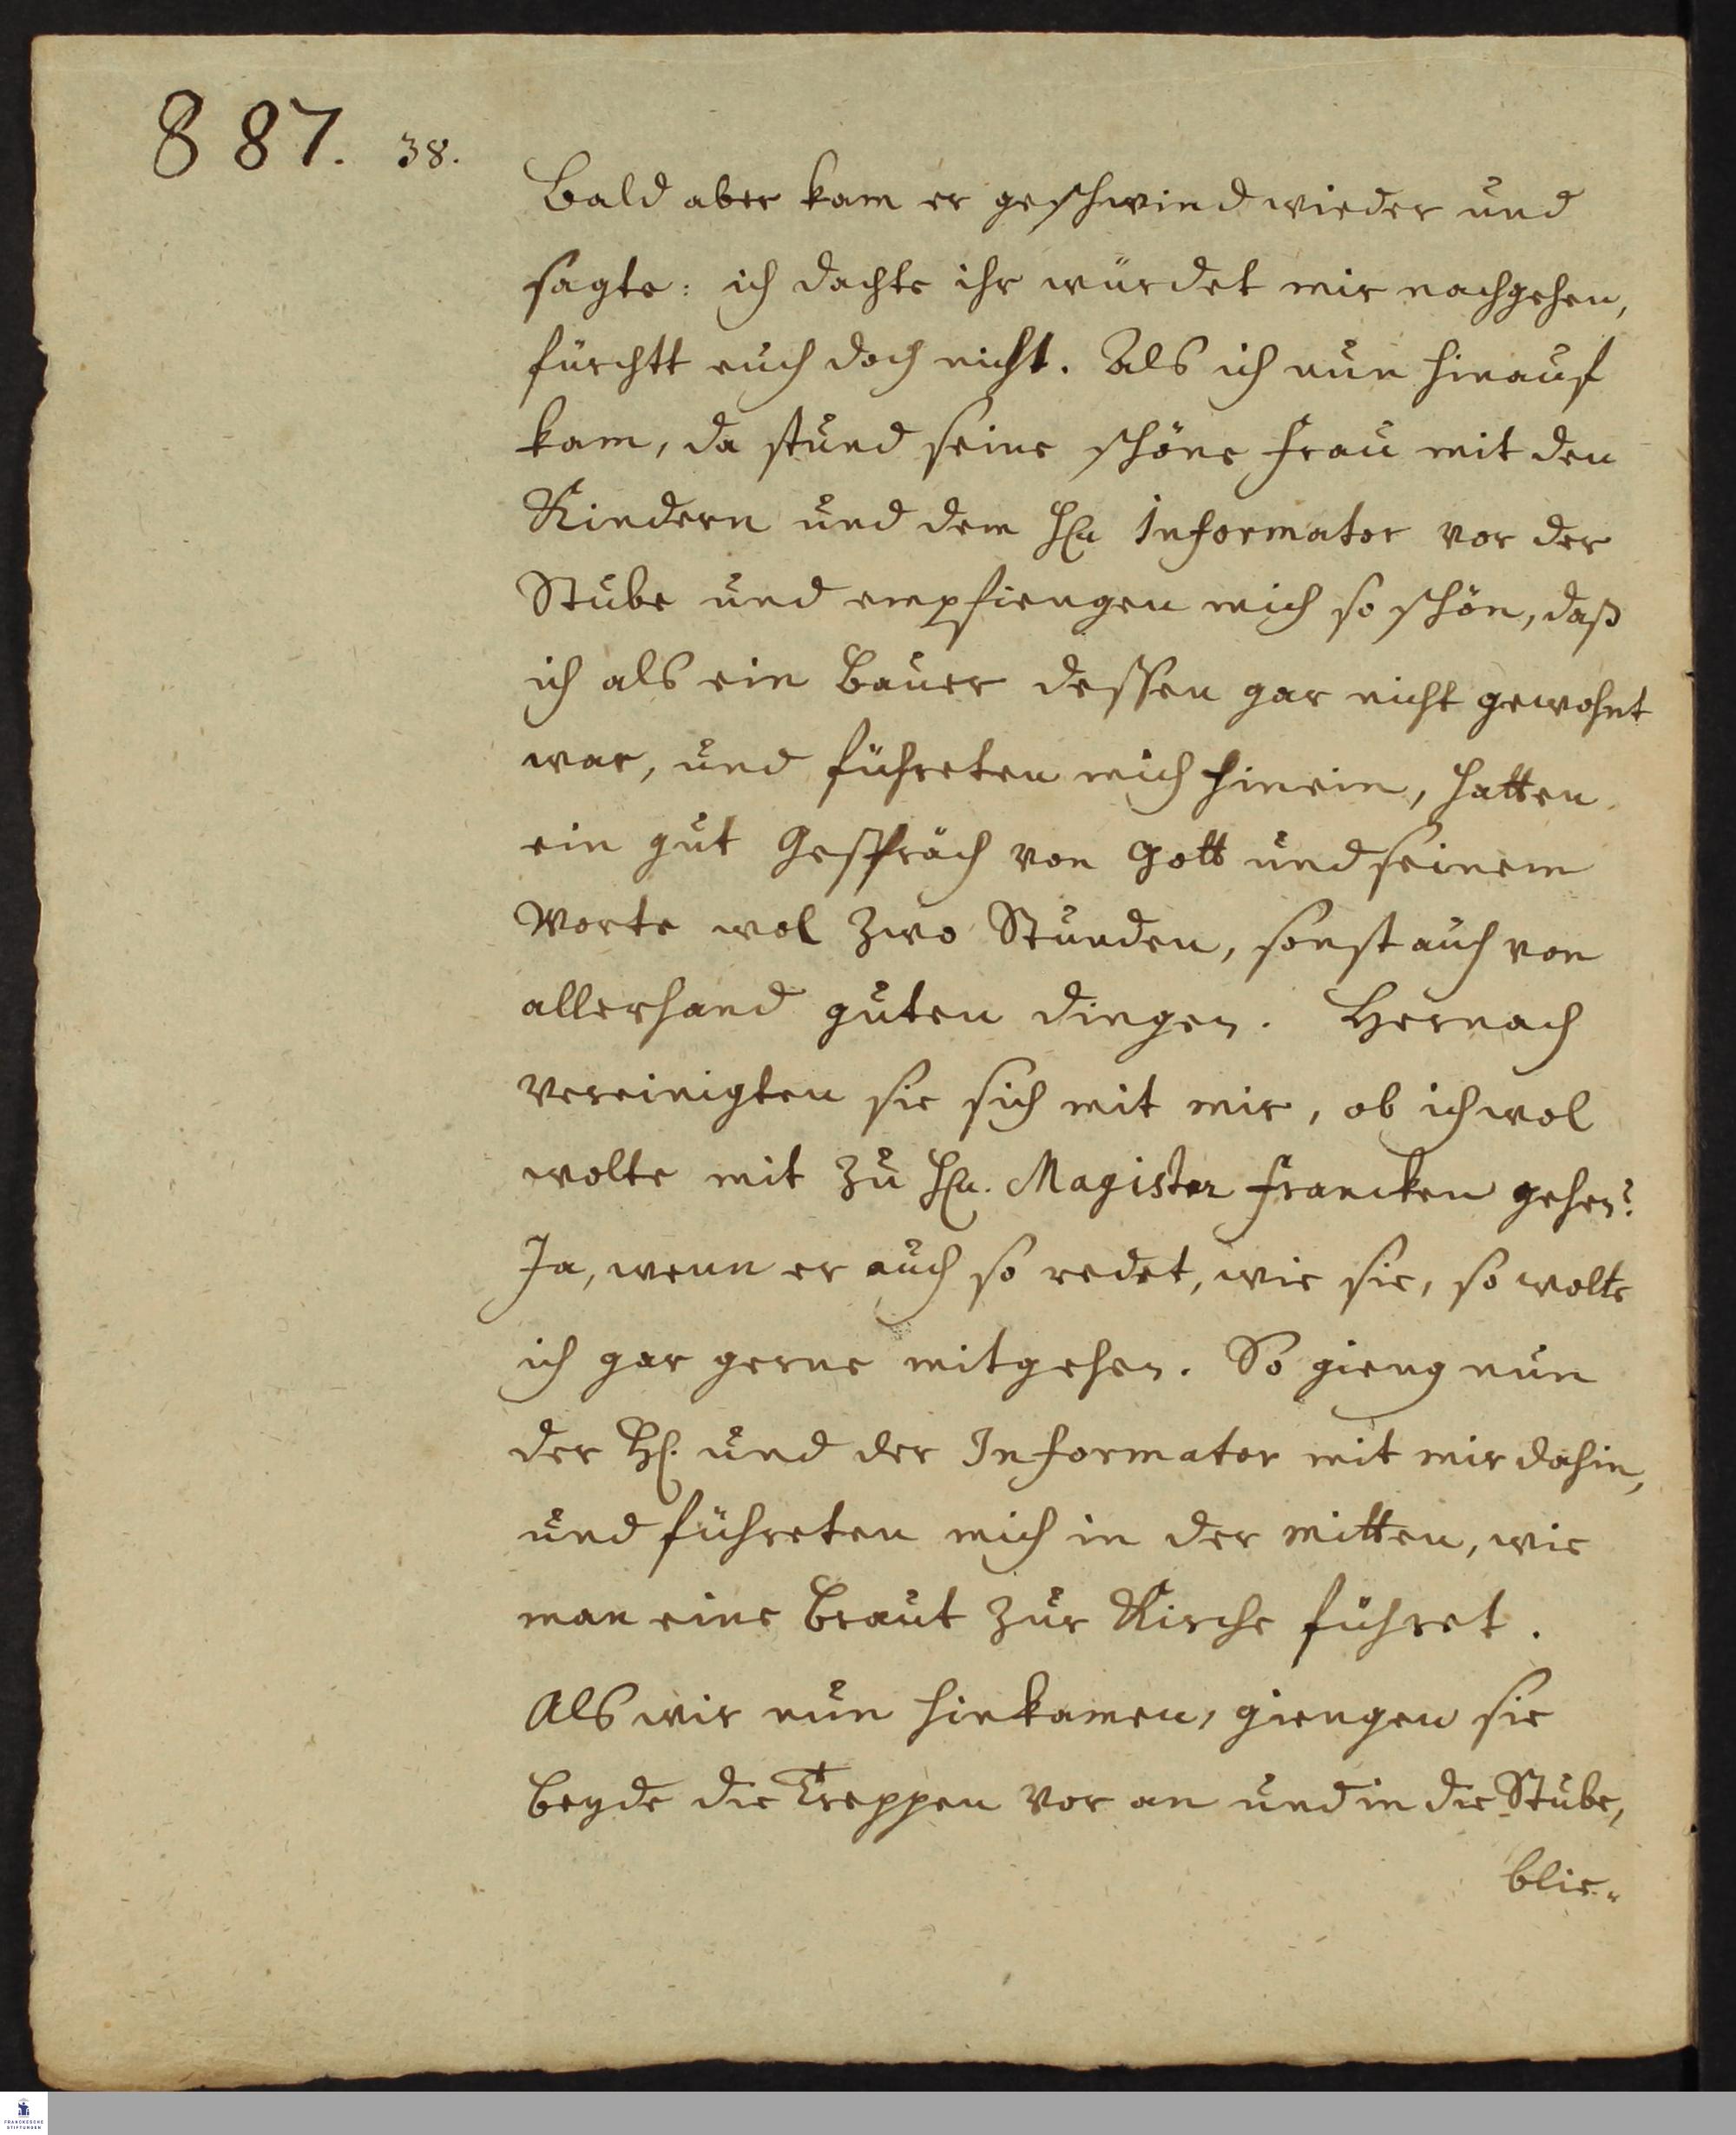 887. 38.
Bald aber kam er geschwind wieder und
sagte: ich dachte ihr würdet mir nachgehen,
fürchtt euch doch nicht. Als ich nun hinauf
kam, da stund seine schöne Frau mit den
Kindern und dem Hn Informator vor der
Stube und empfiengen mich so schön, daß
ich als ein Bauer dessen gar nicht gewohnt
war, und führeten mich hinein, hatten
ein gut Gespräch von Gott und seinem
Worte wol zwo Stunden, sonst auch von
allerhand guten dingen. Hernach
vereinigten sie sich mit mir, ob ich wol
wolte mit zu Hn. Magister Francken gehen?
Ja, wenn er auch so redet, wie sie, so wolte
ich gar gerne mitgehen. So gieng nun
der H. und der Informator mit mir dahin,
und führeten mich in der mitten, wie
man eine Braut zur Kirche führet.
Als wir nun hinkamen, giengen sie
beyde die Treppen vor an und in die Stube,
blie-
FRANCKESCHE
STIFTUNGEN